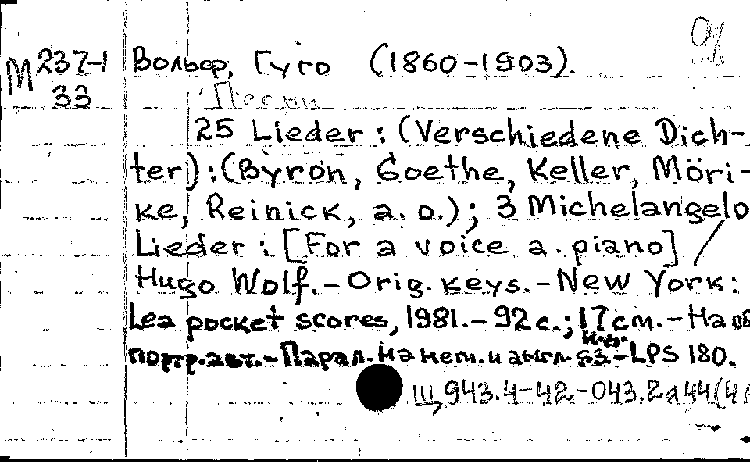 М 237-1 Вольф, Гуго (1860-1903).
33 Песни
25 Lieder : (Verschiedene Dich-
ter) : (Byron, Goethe, Keller, Möri-
ke, Reinick, a. o.) ; 3 Michelangelo
Lieder : [For a voice a. piano] /
Hugo Wolf. - Orig. keys. - New York :
Lea pocket scores, 1981. - 92 с. ; 17 см. - На об
портр. авт. - Парал. на нем. и англ. яз. - LPS 180.
Щ 943.4-42-043.2а44(4